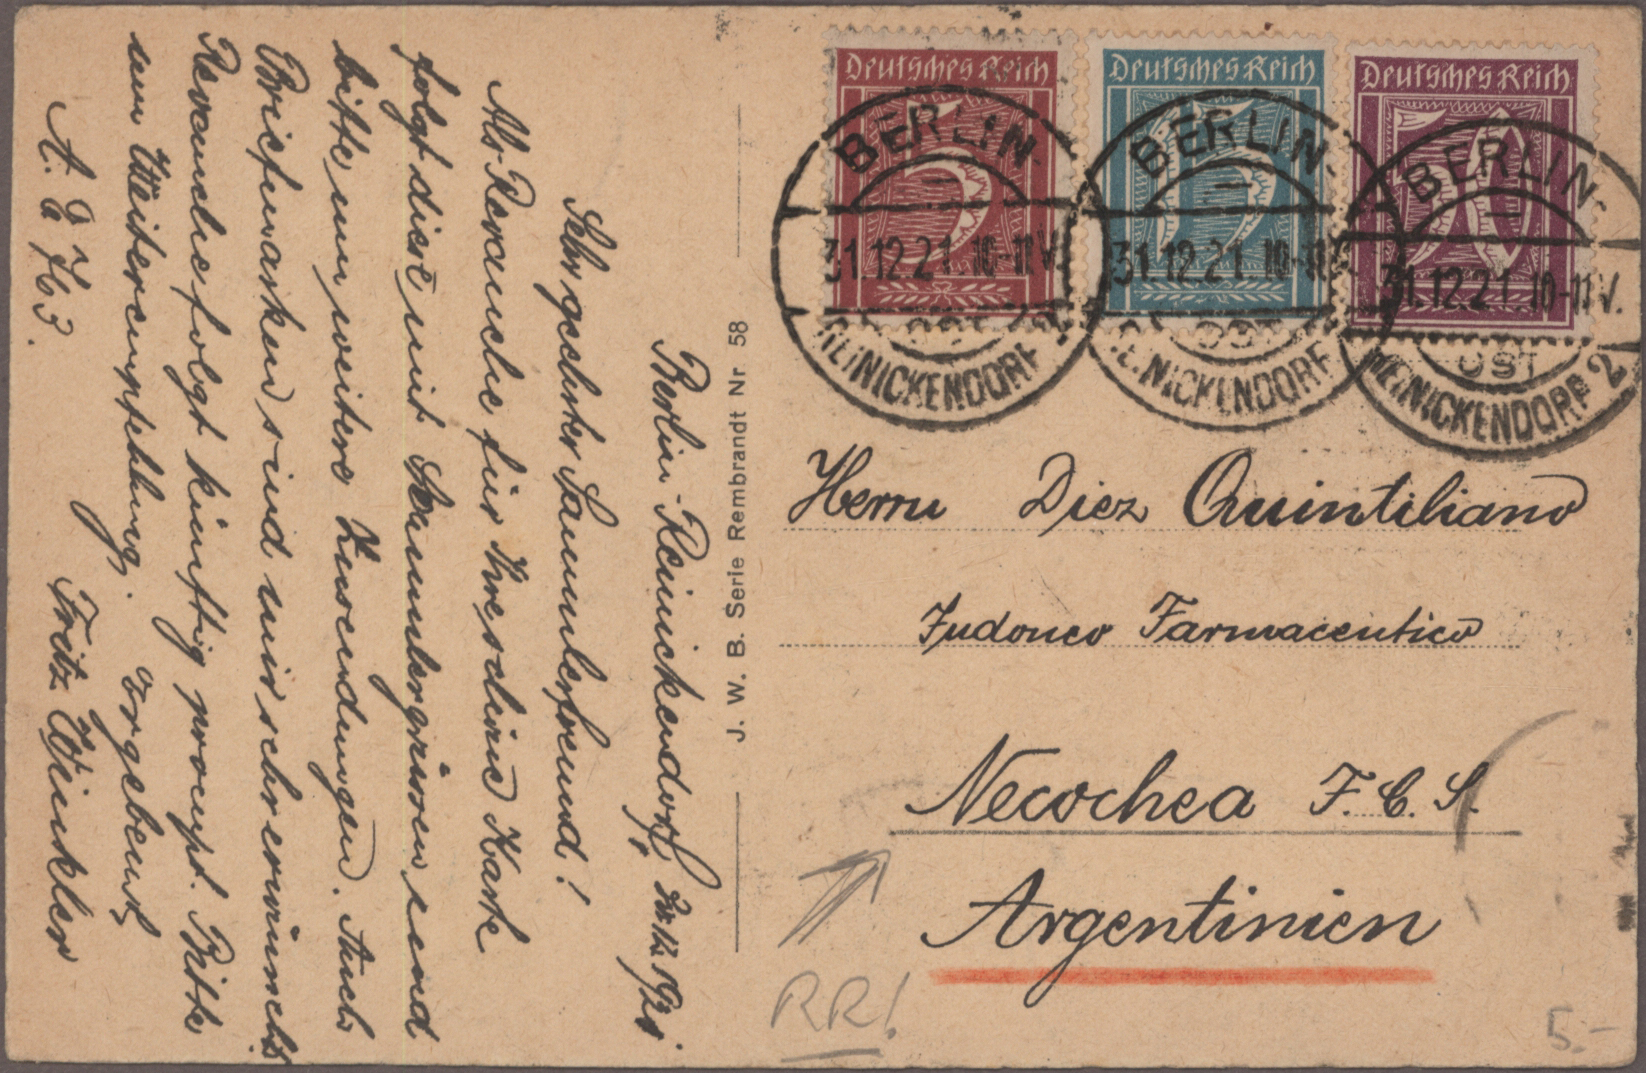 Berlin-Reinickendorf, 30.12.1921.
Sehr geehrter Sammlerfreund!
Als Revanche für Ihre schöne Karte
folgt diese mit Sammlergrüssen und
bitte um weitere Zusendungen. Auch
Briefmarken sind mir sehr erwünscht
Revanche folgt künftig prompt. Bitte
um Weiterempfehlung.
Ergebenst
Fritz Winkler
763.
J. W. B. Serie Rembrandt Nr 58
Deutsches Reich
5
Deutsches Reich
15
Deutsches Reich
50
BERLIN-
31.12.21. 10-11 V.
OST
REINICKENDORF
BERLIN-
31.12.21. 10-11
OST
REINICKENDORF
BERLIN-
31.12.21. 10-11 V.
OST
REINICKENDORF 2
Herrn Diez Quintiliano
Judoneo Farmaceutico
Necochea F.C.S.
Argentinien
RR!
5.-